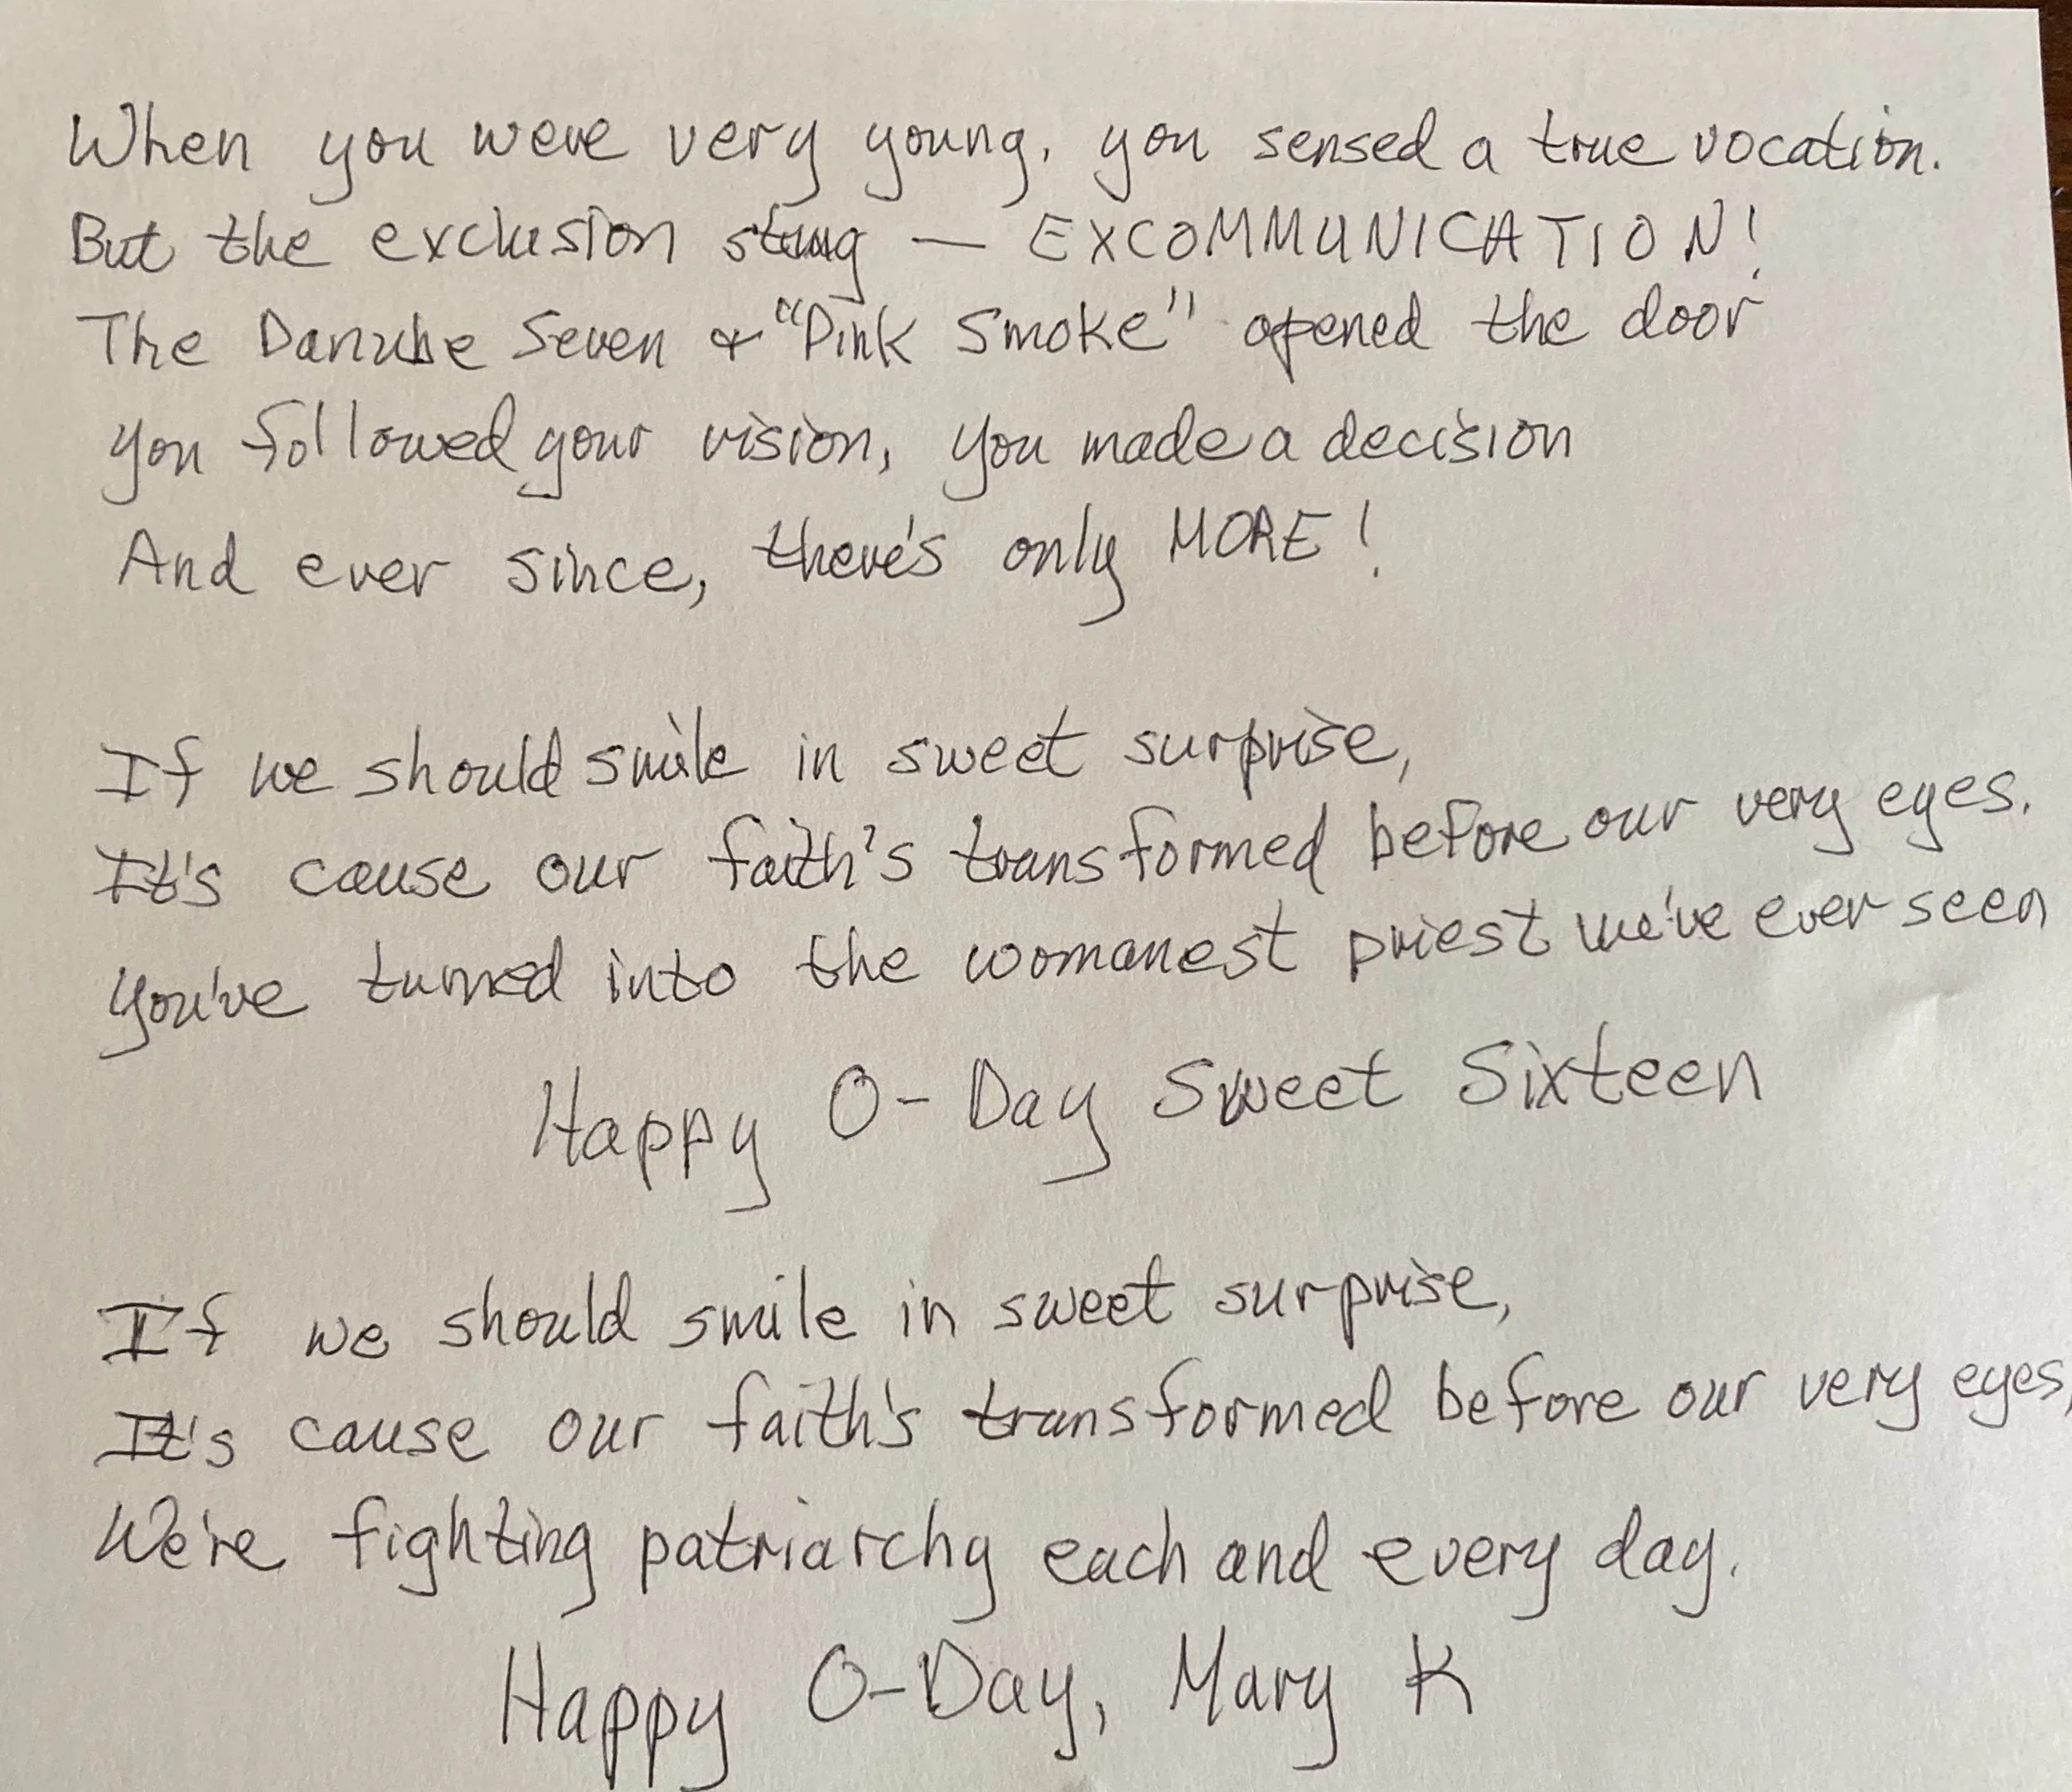 When you were very young, you sensed a true vocation.
But the exclusion stung — EXCOMMUNICATION!
The Danube Seven & "Pink Smoke" opened the door
you followed your vision, you made a decision
And ever since, there's only MORE!
If we should smile in sweet surprise,
It's cause our faith's transformed before our very eyes.
You've turned into the womanest priest we've ever seen
Happy O-Day Sweet Sixteen
If we should smile in sweet surprise,
It's cause our faith's transformed before our very eyes,
We're fighting patriarchy each and every day.
Happy O-Day, Mary K